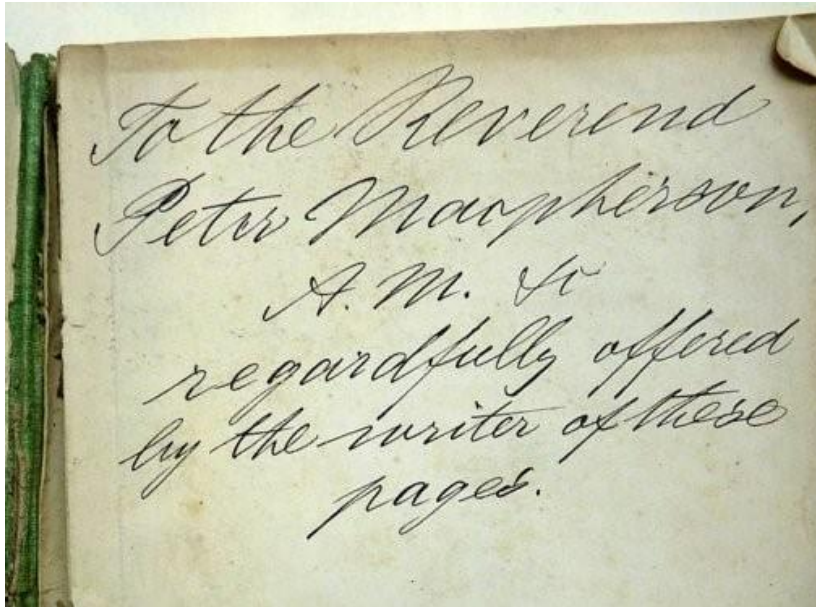 To the Reverend
Peter Macpherson,
A. M. &c
regardfully offered
by the writer of these
pages.